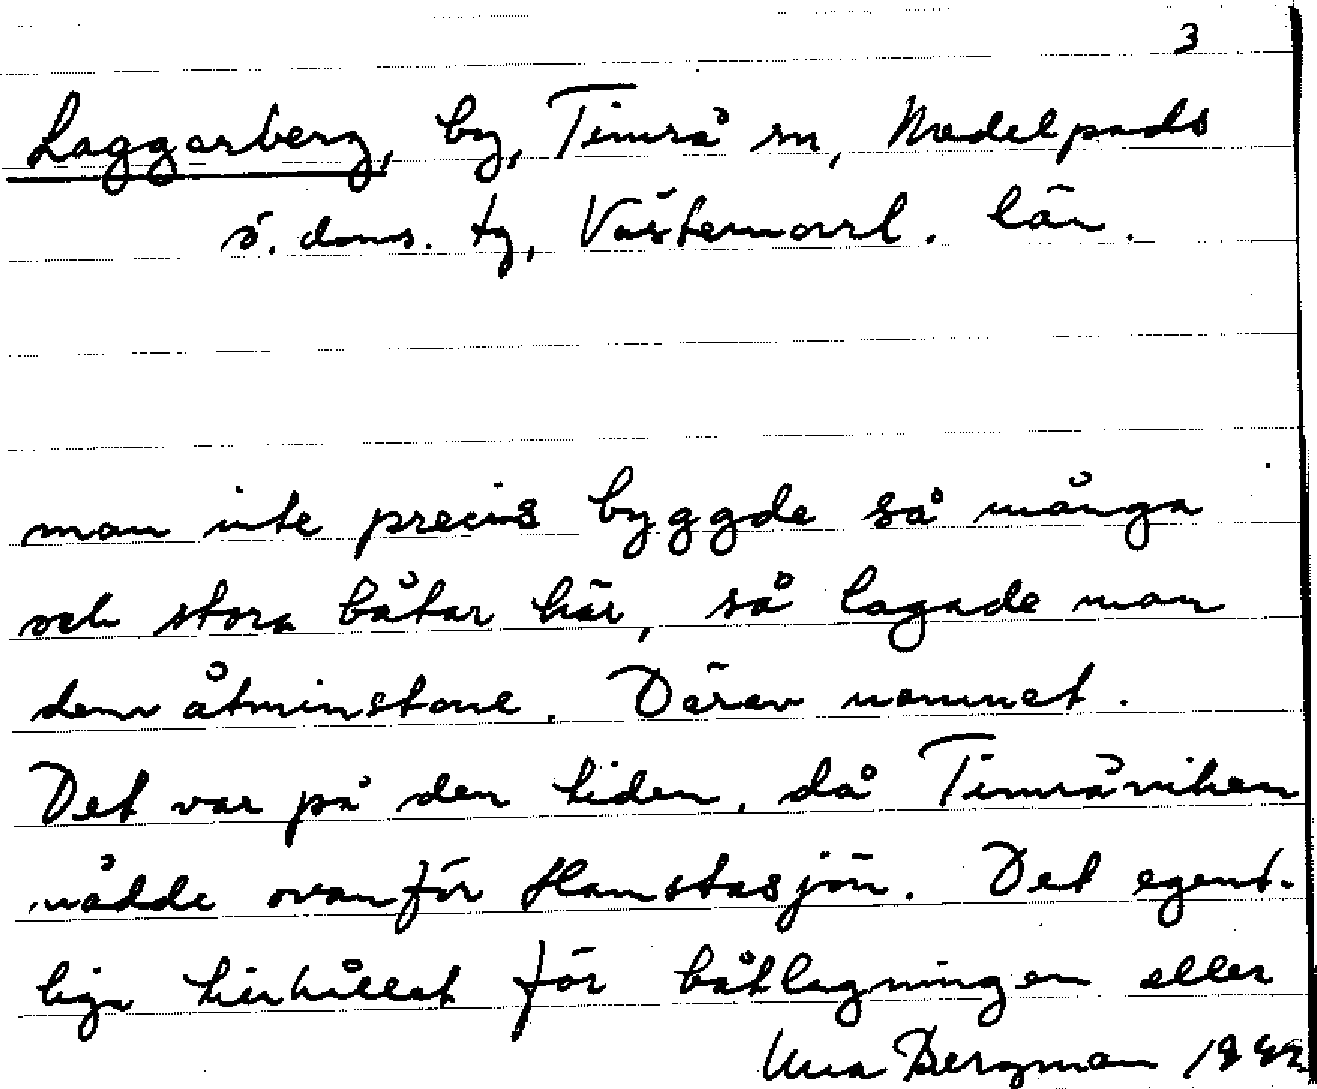 3
Laggarberg, by, Timrå sn, Medelpads
ö. doms. tg, Västernorrl. län.
man inte precis byggde så många
och stora båtar här, så lagade man
dem åtminstone. Därav namnet.
Det var på den tiden, då Timråviken
nådde ovanför Hamstasjön. Det egent-
liga tillhållet för båtlagningen eller
Una Bergman